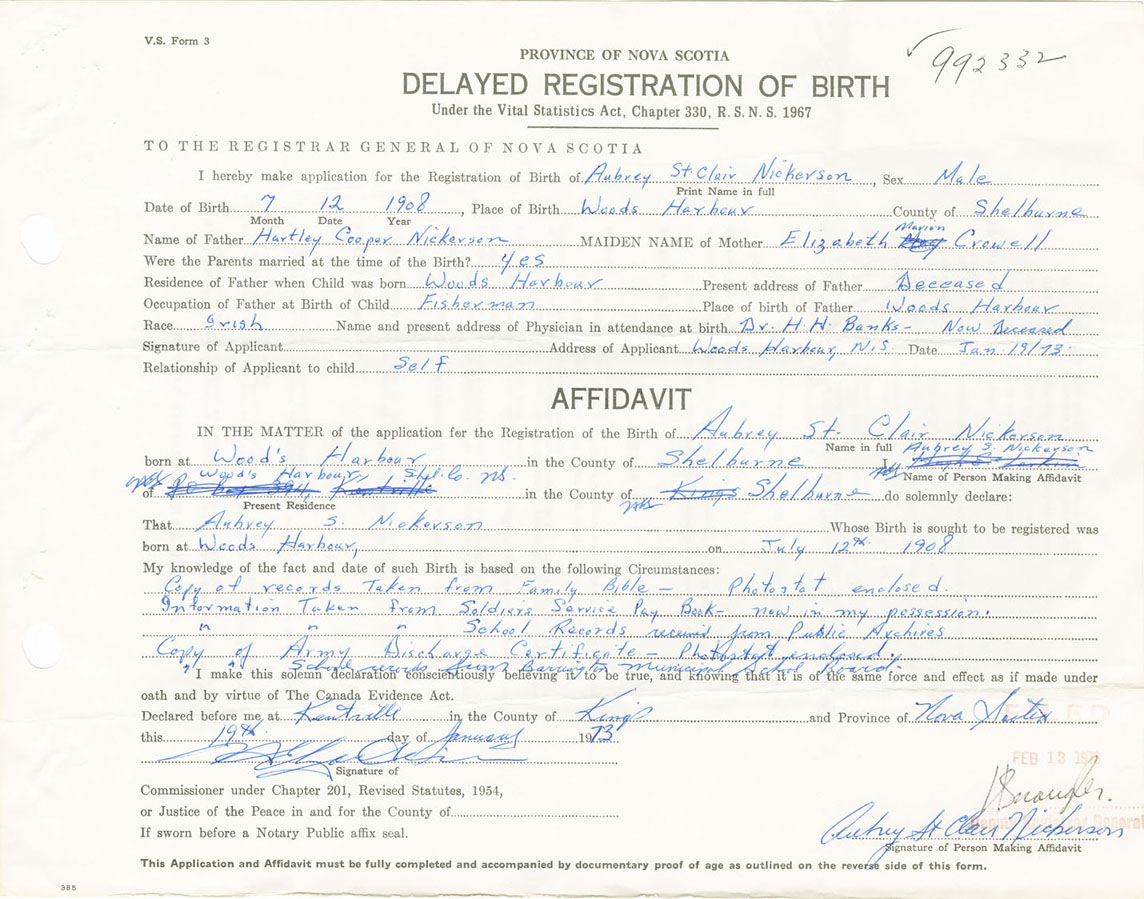 V.S. Form 3
992332
PROVINCE OF NOVA SCOTIA
DELAYED REGISTRATION OF BIRTH
Under the Vital Statistics Act, Chapter 330, R. S. N. S. 1967
TO THE REGISTRAR GENERAL OF NOVA SCOTIA
I hereby make application for the Registration of Birth of Aubrey St. Clair Nickerson, Sex Male
Print Name in full
Date of Birth 7 12 1908, Place of Birth Woods Harbour County of Shelburne
Month Date Year
Marion
Name of Father Hartley Cooper Nickerson MAIDEN NAME of Mother Elizabeth May Crowell
Were the Parents married at the time of the Birth? yes
Residence of Father when Child was born Woods Harbour Present address of Father Deceased
Occupation of Father at Birth of Child Fisherman Place of birth of Father Woods Harbour
Race Irish Name and present address of Physician in attendance at birth Dr. H. H. Banks - Now Deceased
Signature of Applicant Address of Applicant Woods Harbour, N.S. Date Jan 19/73.
Relationship of Applicant to child Self
AFFIDAVIT
IN THE MATTER of the application for the Registration of the Birth of Aubrey St. Clair Nickerson
Name in full Aubrey S. Nickerson
born at Wood's Harbour in the County of Shelburne I
Name of Person Making Affidavit
Wood's Harbour, Shel. Co. NS.
of PO Box 394, Kentville in the County of Kings Shelburne do solemnly declare:
Present Residence
That Aubrey S. Nickerson Whose Birth is sought to be registered was
born at Woods Harbour, on July 12th. 1908
My knowledge of the fact and date of such Birth is based on the following Circumstances:
Copy of records Taken from Family Bible - Photostat enclosed.
Information Taken from Soldiers Service Pay Book - now in my possession.
" " " School Records received from Public Archives
Copy of Army Discharge Certificate - Photostat enclosed.
" " School records from Barrington Municipal School Board.
I make this solemn declaration conscientiously believing it to be true, and knowing that it is of the same force and effect as if made under
oath and by virtue of The Canada Evidence Act.
Declared before me at Kentville in the County of Kings and Province of Nova Scotia
this 19th. day of January 1973
FEB 13
Signature of
Commissioner under Chapter 201, Revised Statutes, 1954,
or Justice of the Peace in and for the County of
Deputy Registrar General
If sworn before a Notary Public affix seal.
Aubrey St Clair Nickerson
Signature of Person Making Affidavit
This Application and Affidavit must be fully completed and accompanied by documentary proof of age as outlined on the reverse side of this form.
385